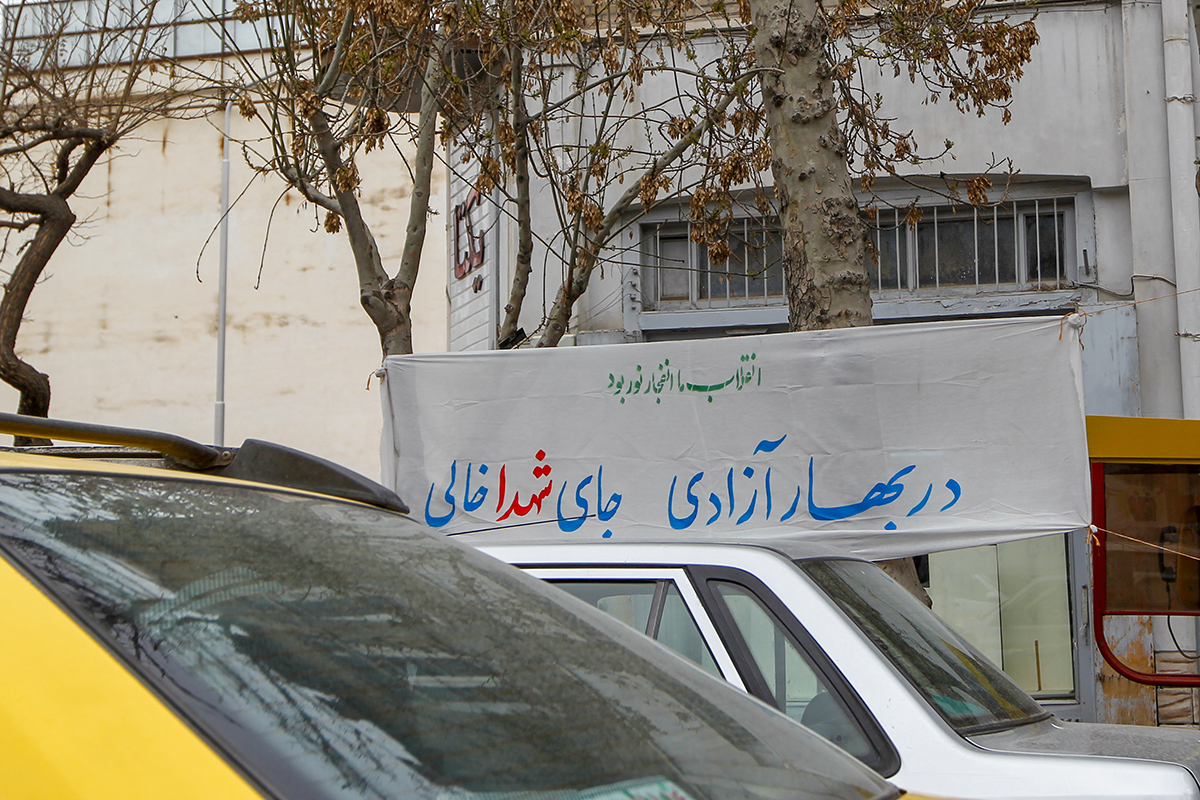 انقلاب ما انفجار نور بود
در بهار آزادی جای شهدا خالی